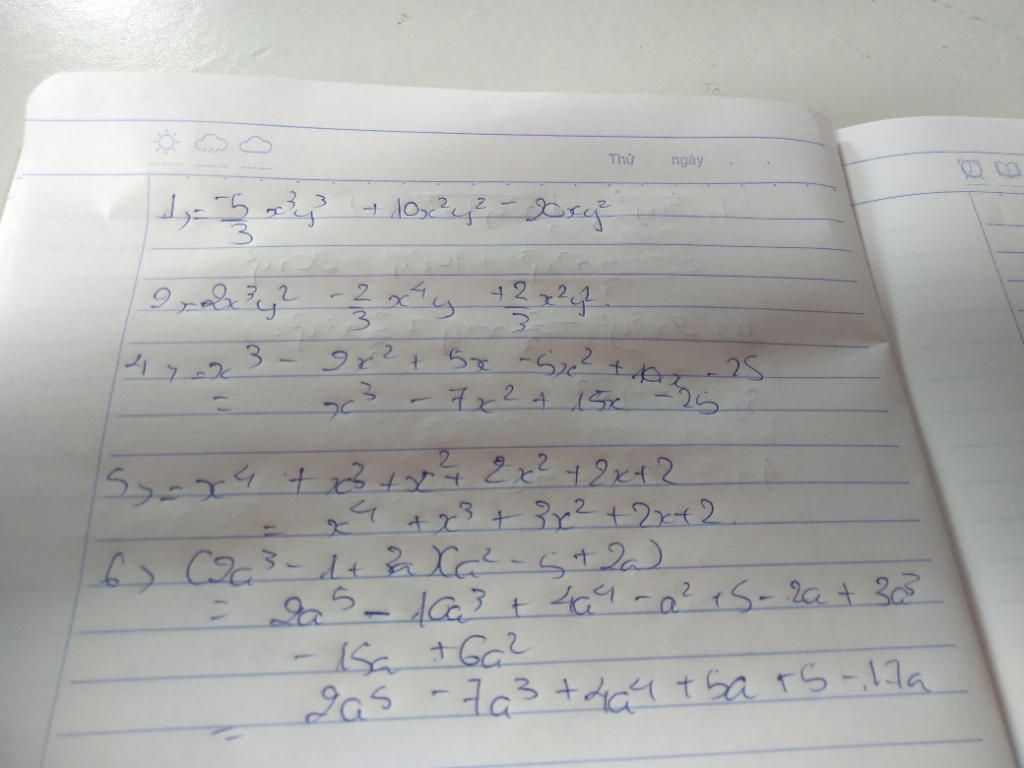 Thứ ngày . .
1, = -5/3 x³y³ + 10x²y² - 20xy²
2, = 2x³y² - 2/3 x⁴y + 2/3 x²y².
4, = x³ - 2x² + 5x - 5x² + 10x - 25
= x³ - 7x² + 15x - 25
5, = x⁴ + x³ + x² + 2x² + 2x + 2
= x⁴ + x³ + 3x² + 2x + 2
6, (2a³ - 1 + 3a)(a² - 5 + 2a)
= 2a⁵ - 10a³ + 4a⁴ - a² + 5 - 2a + 3a³
- 15a + 6a²
= 2a⁵ - 7a³ + 4a⁴ + 5a + 5 - 17a